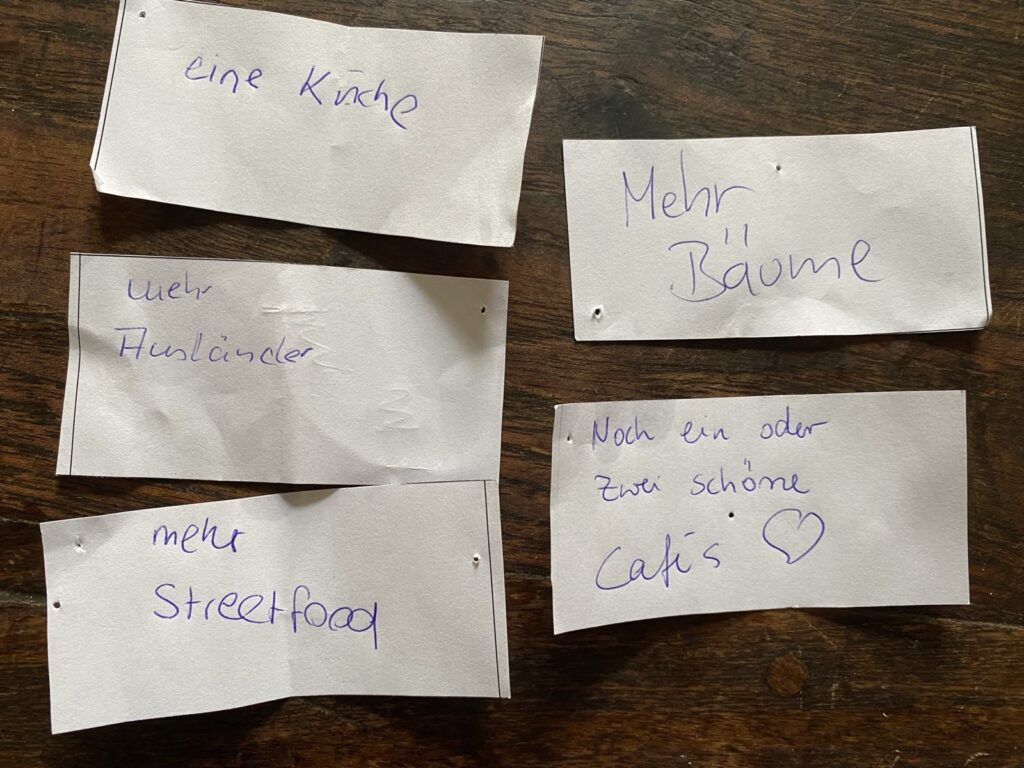 eine Küche
mehr
Ausländer
mehr
Streetfood
Mehr
Bäume
Noch ein oder
zwei schöne
Cafés ♡